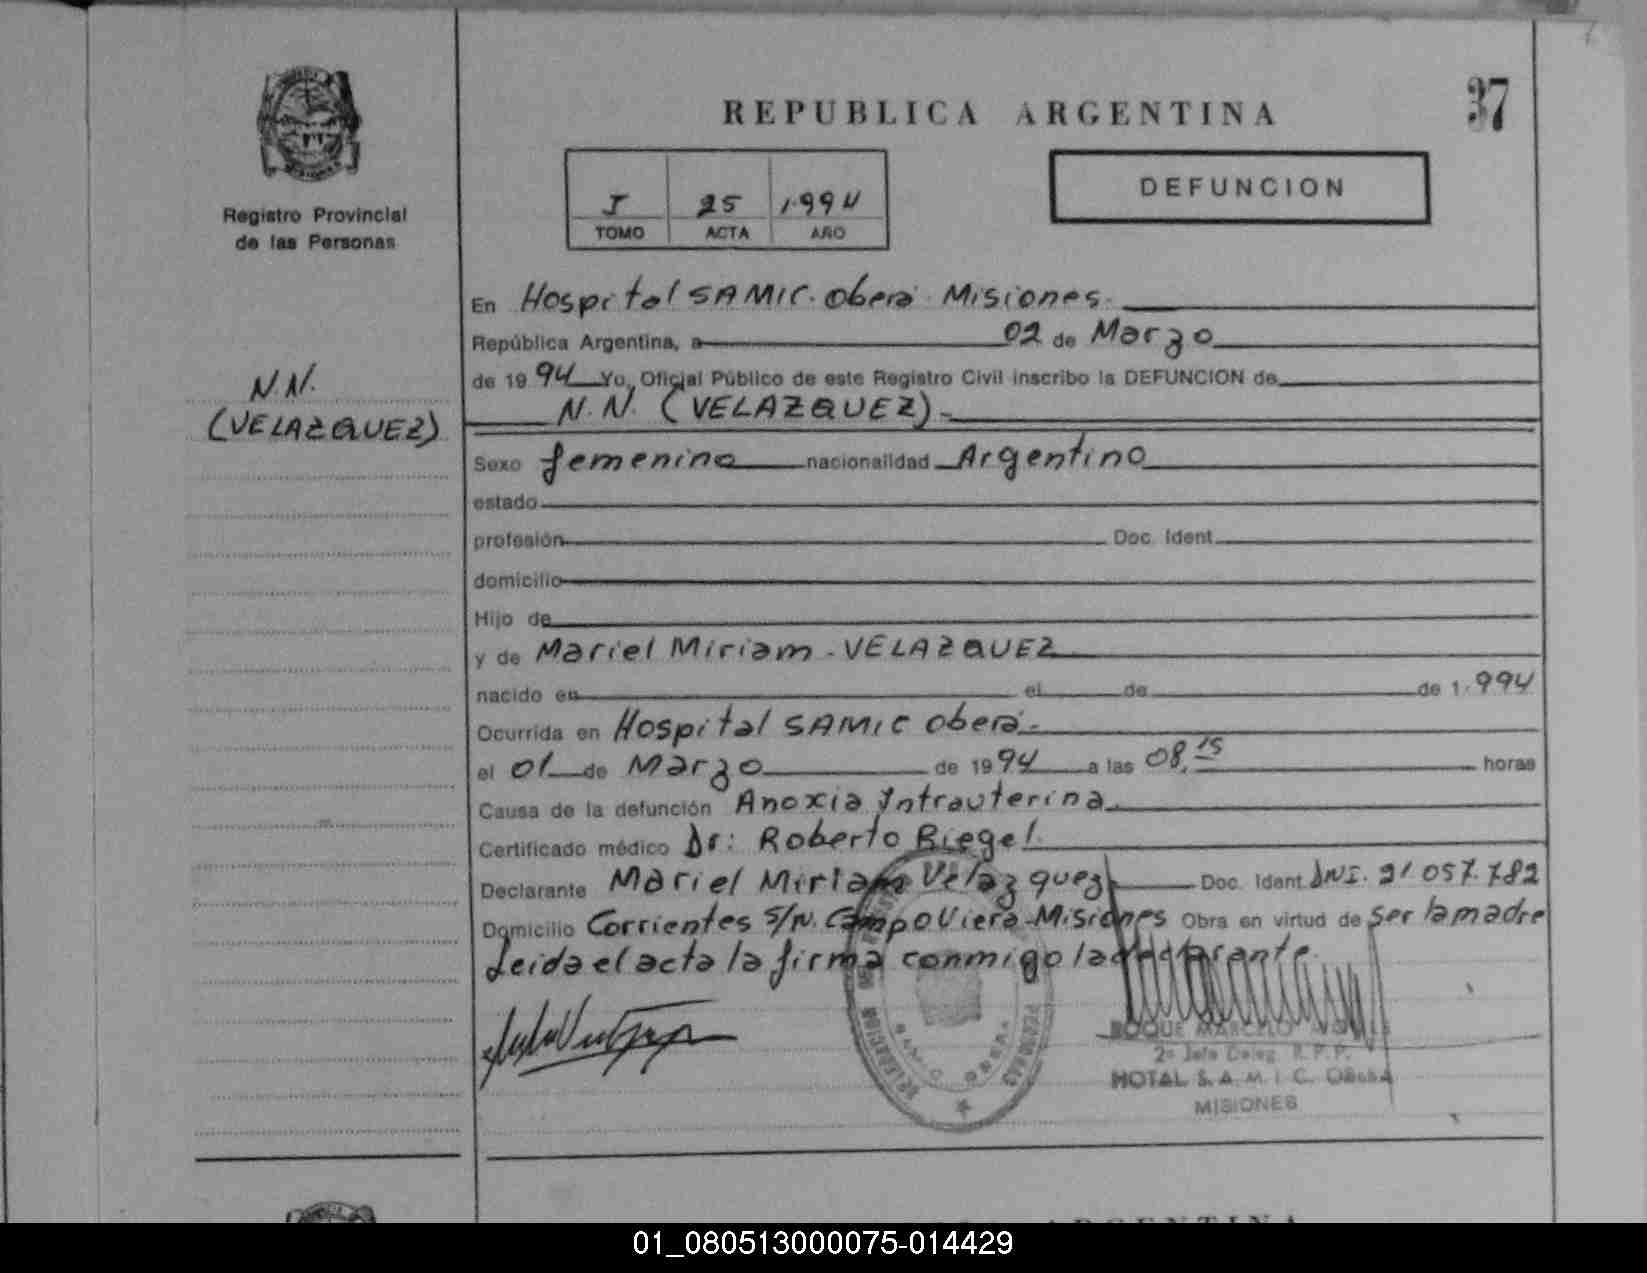 REPUBLICA ARGENTINA
37
Registro Provincial
de las Personas
I 25 1.994
TOMO ACTA AÑO
DEFUNCION
N.N.
(VELAZQUEZ)
En Hospital SAMIC. Oberá Misiones.
República Argentina, a 02 de Marzo
de 1994 Yo, Oficial Público de este Registro Civil inscribo la DEFUNCION de
N. N. (VELAZQUEZ).
Sexo femenino nacionalidad Argentino
estado
profesión Doc. Ident.
domicilio
Hijo de
y de Mariel Miriam - VELAZQUEZ
nacido en el de de 1.994
Ocurrida en Hospital SAMIC Oberá.
el 01 de Marzo de 1994 a las 08,15 horas
Causa de la defunción Anoxia Intrauterina.
Certificado médico Dr: Roberto Riegel.
Declarante Mariel Miriam Velazquez Doc. Ident. DNI. 21 057.782
Domicilio Corrientes S/N. Campo Viera - Misiones Obra en virtud de ser la madre
Leida el acta la firma conmigo la declarante.
ROQUE MARCELO
2º Jefe Deleg. R. P. P.
HOTAL S. A. M. I. C. OBERA
MISIONES
ARGENTINA
01_080513000075-014429